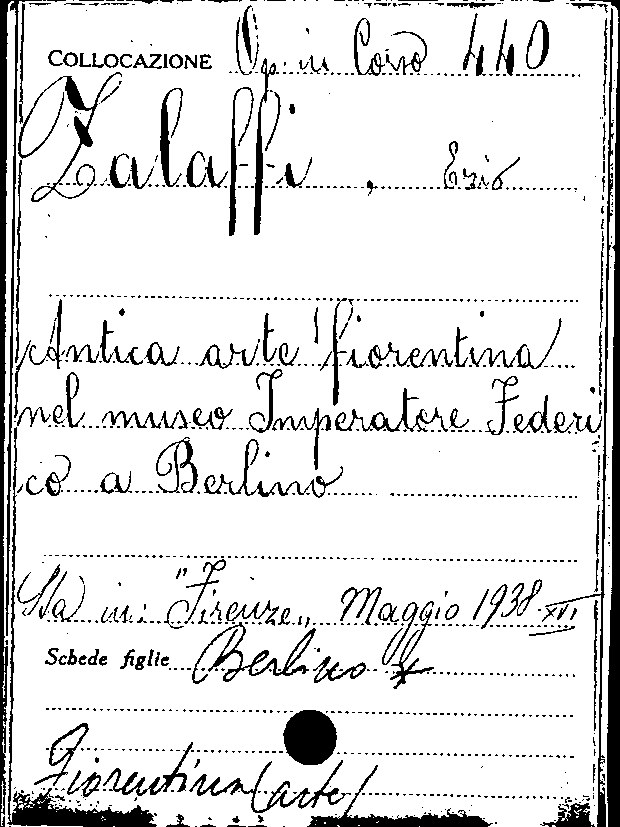 COLLOCAZIONE Op. in Corso 440
Zalaffi, Ezio
Antica arte fiorentina
nel museo Imperatore Federi
co a Berlino
Sta in: "Firenze„ Maggio 1938-XVI
Schede figlie Berlino *
Fiorentina (arte)